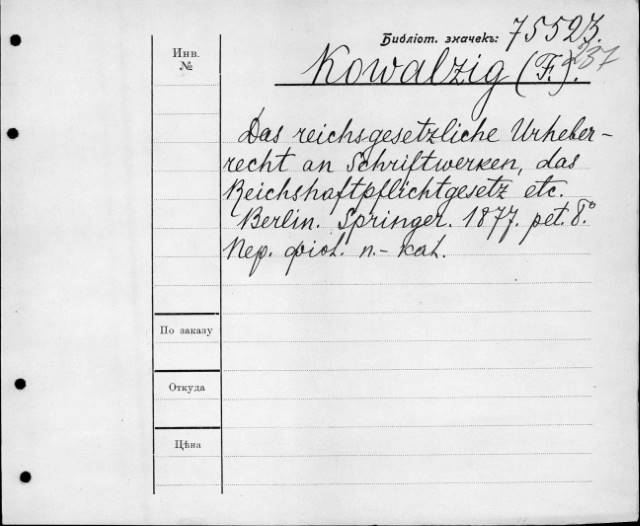 Библіот. значекъ: 75523.
237
Инв.
№
Kowalzig (F.).
Das reichsgesetzliche Urheber-
recht an Schriftwerken, das
Reichshaftpflichtgesetz etc.
Berlin. Springer. 1877. pet. 8°.
Пер. фіол. п. - кал.
По заказу
Откуда
Цѣна